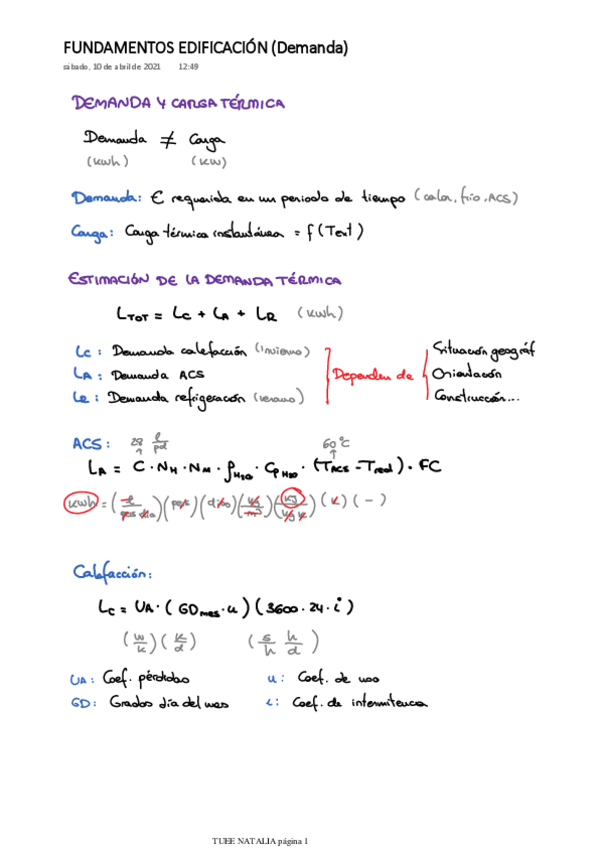 FUNDAMENTOS EDIFICACIÓN (Demanda)
sábado, 10 de abril de 2021 12:49
DEMANDA Y CARGA TÉRMICA
Demanda ≠ Carga
(kWh) (kW)
Demanda: E requerida en un periodo de tiempo (calor, frío, ACS)
Carga: Carga térmica instantánea = f(Text)
ESTIMACIÓN DE LA DEMANDA TÉRMICA
L_TOT = L_C + L_A + L_R (kWh)
L_C: Demanda calefacción (invierno)
L_A: Demanda ACS
L_R: Demanda refrigeración (verano)
Dependen de
Situación geográf
Orientación
Construcción...
ACS: 28 l/pd 60°C
L_A = C · N_H · N_M · ρ_H2O · Cp_H2O · (T_ACS - T_red) · FC
kWh = (l/pers día)(pers)(día)(kg/m³)(kJ/kg K)(K)(-)
Calefacción:
L_C = UA · (GD_mes · u)(3600 · 24 · i)
(W/K)(K/d) (s/h h/d)
UA: Coef. pérdidas u: Coef. de uso
GD: Grados día del mes i: Coef. de intermitencia
TUEE NATALIA página 1